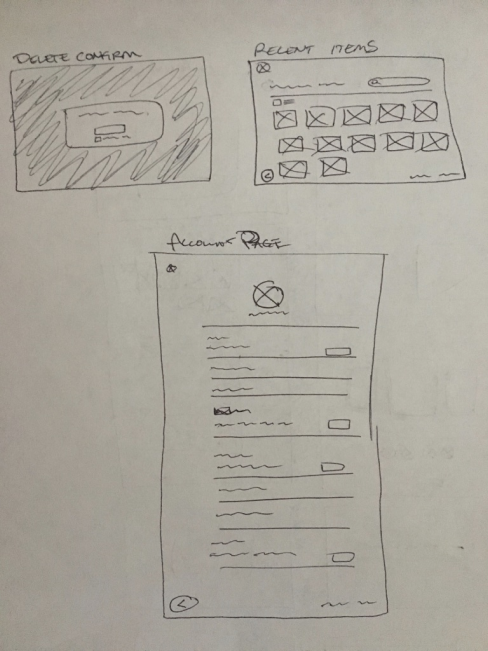 DELETE CONFIRM
RECENT ITEMS
ACCOUNT PAGE